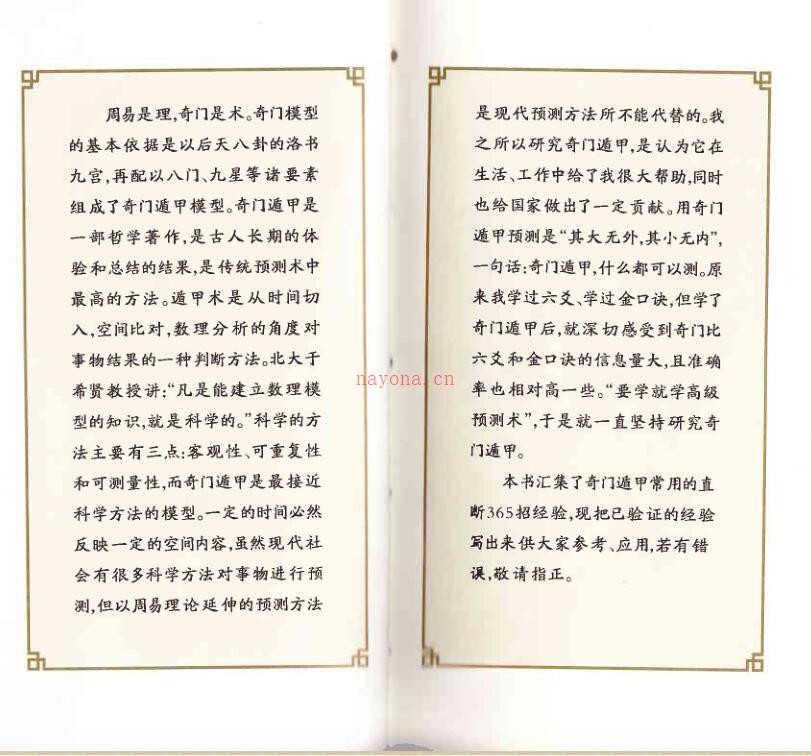 周易是理,奇门是术。奇门模型
的基本依据是以后天八卦的洛书
九宫,再配以八门、九星等诸要素
组成了奇门遁甲模型。奇门遁甲是
一部哲学著作,是古人长期的体
验和总结的结果,是传统预测术中
最高的方法。遁甲术是从时间切
入,空间比对,数理分析的角度对
事物结果的一种判断方法。北大于
希贤教授讲:“凡是能建立数理模
型的知识,就是科学的。”科学的方
法主要有三点:客观性、可重复性
和可测量性,而奇门遁甲是最接近
科学方法的模型。一定的时间必然
反映一定的空间内容,虽然现代社
会有很多科学方法对事物进行预
测,但以周易理论延伸的预测方法
是现代预测方法所不能代替的。我
之所以研究奇门遁甲,是认为它在
生活、工作中给了我很大帮助,同时
也给国家做出了一定贡献。用奇门
遁甲预测是“其大无外,其小无内”,
一句话:奇门遁甲,什么都可以测。原
来我学过六爻、学过金口诀,但学了
奇门遁甲后,就深切感受到奇门比
六爻和金口诀的信息量大,且准确
率也相对高一些。“要学就学高级
预测术”,于是就一直坚持研究奇
门遁甲。
本书汇集了奇门遁甲常用的直
断365招经验,现把已验证的经验
写出来供大家参考、应用,若有错
误,敬请指正。
nayona.cn